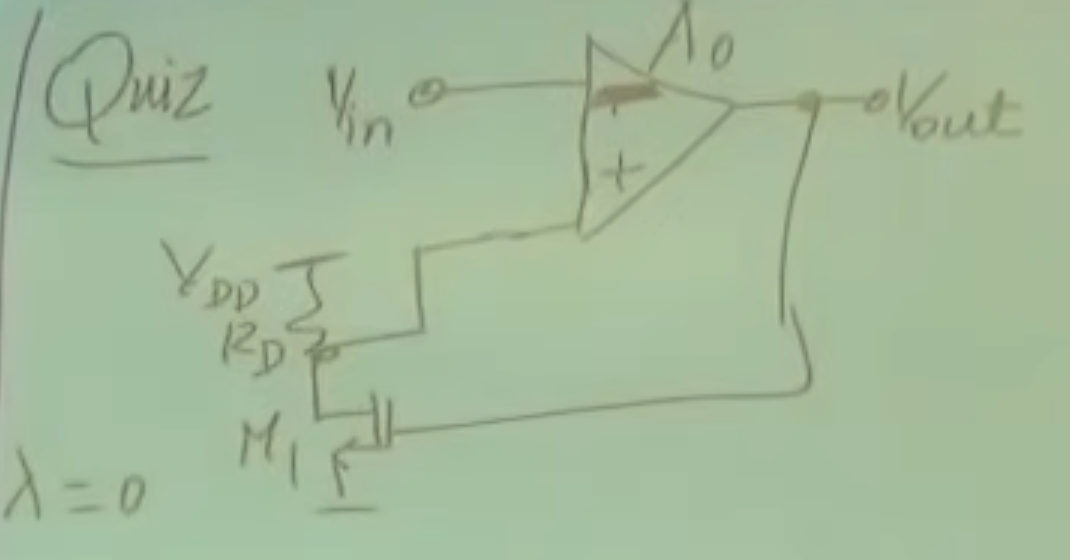 Quiz
Vin
A0
Vout
+
VDD
RD
M1
λ = 0